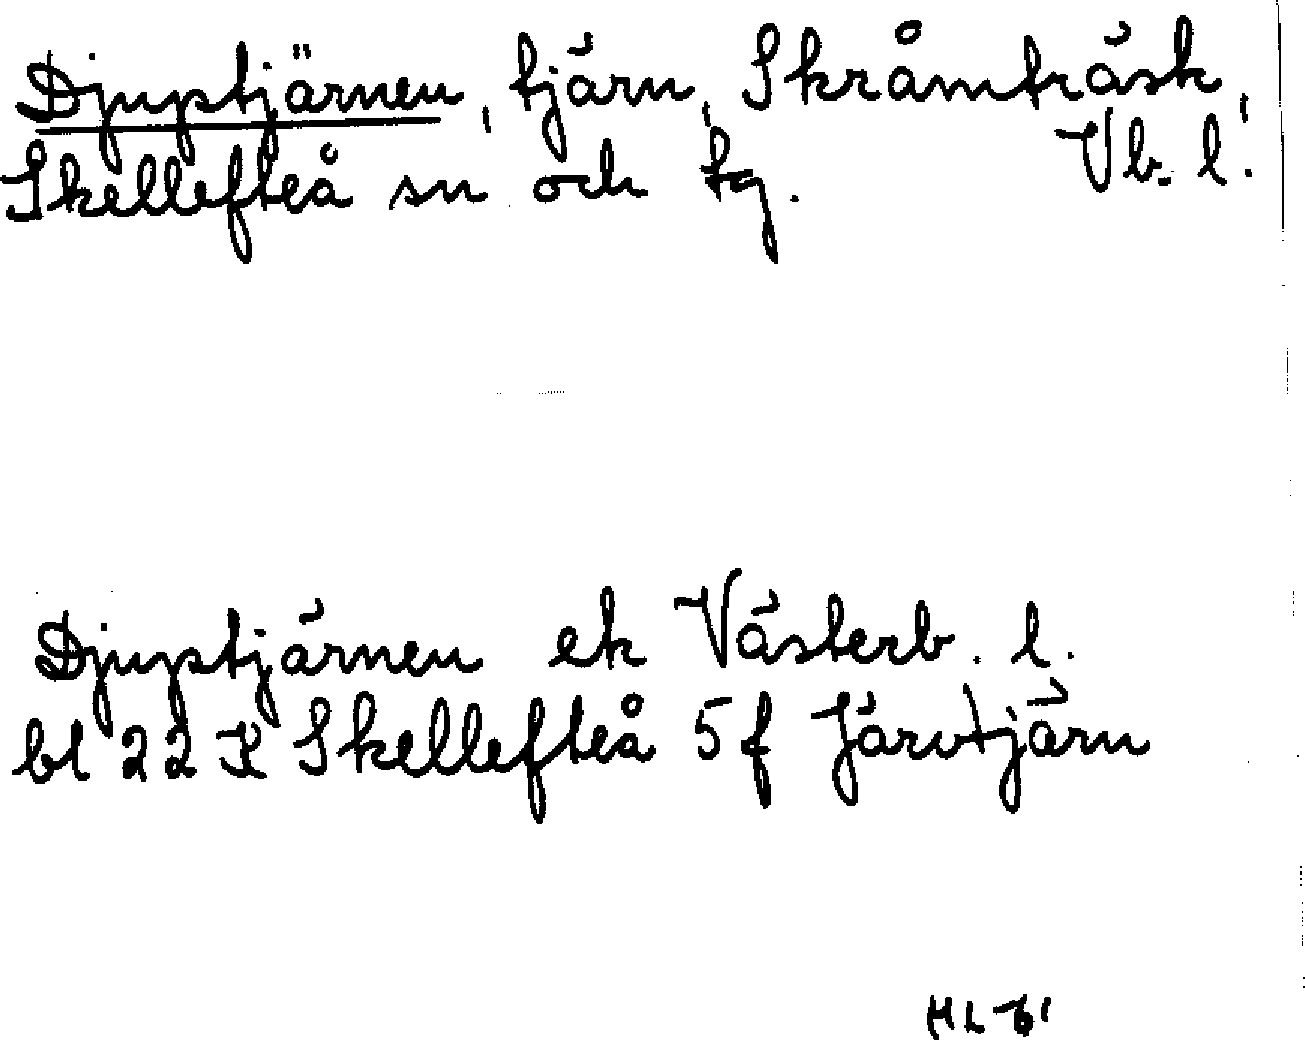 Djuptjärnen, tjärn, Skråmträsk,
Skellefteå sn och tg. Vb. l.
Djuptjärnen ek Västerb. l.
bl 22 K Skellefteå 5 f Järvtjärn
HL-61